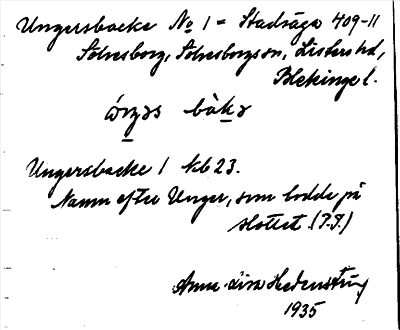 Ungersbacke No 1 = Stadsäga 409-11
Sölvesborg, Sölvesborgs sn, Listers hd,
Blekinge l.
Ungersbacke 1 Kb 23.
Namn efter Unger, som bodde på
slottet. (P.P.)
Anna-Lisa Hedenstierna
1935